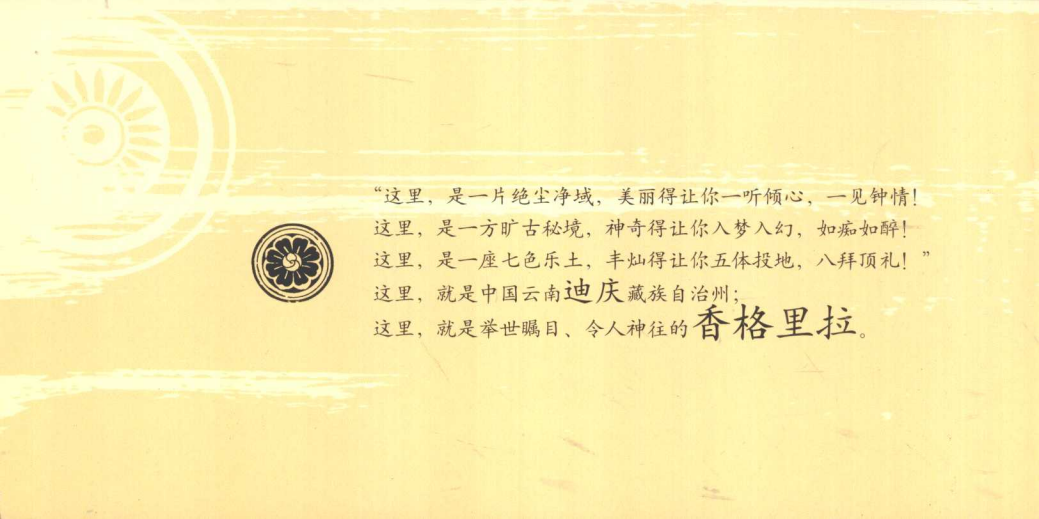 “这里，是一片绝尘净域，美丽得让你一听倾心，一见钟情！
这里，是一方旷古秘境，神奇得让你入梦入幻，如痴如醉！
这里，是一座七色乐土，丰灿得让你五体投地，八拜顶礼！”
这里，就是中国云南迪庆藏族自治州；
这里，就是举世瞩目、令人神往的香格里拉。